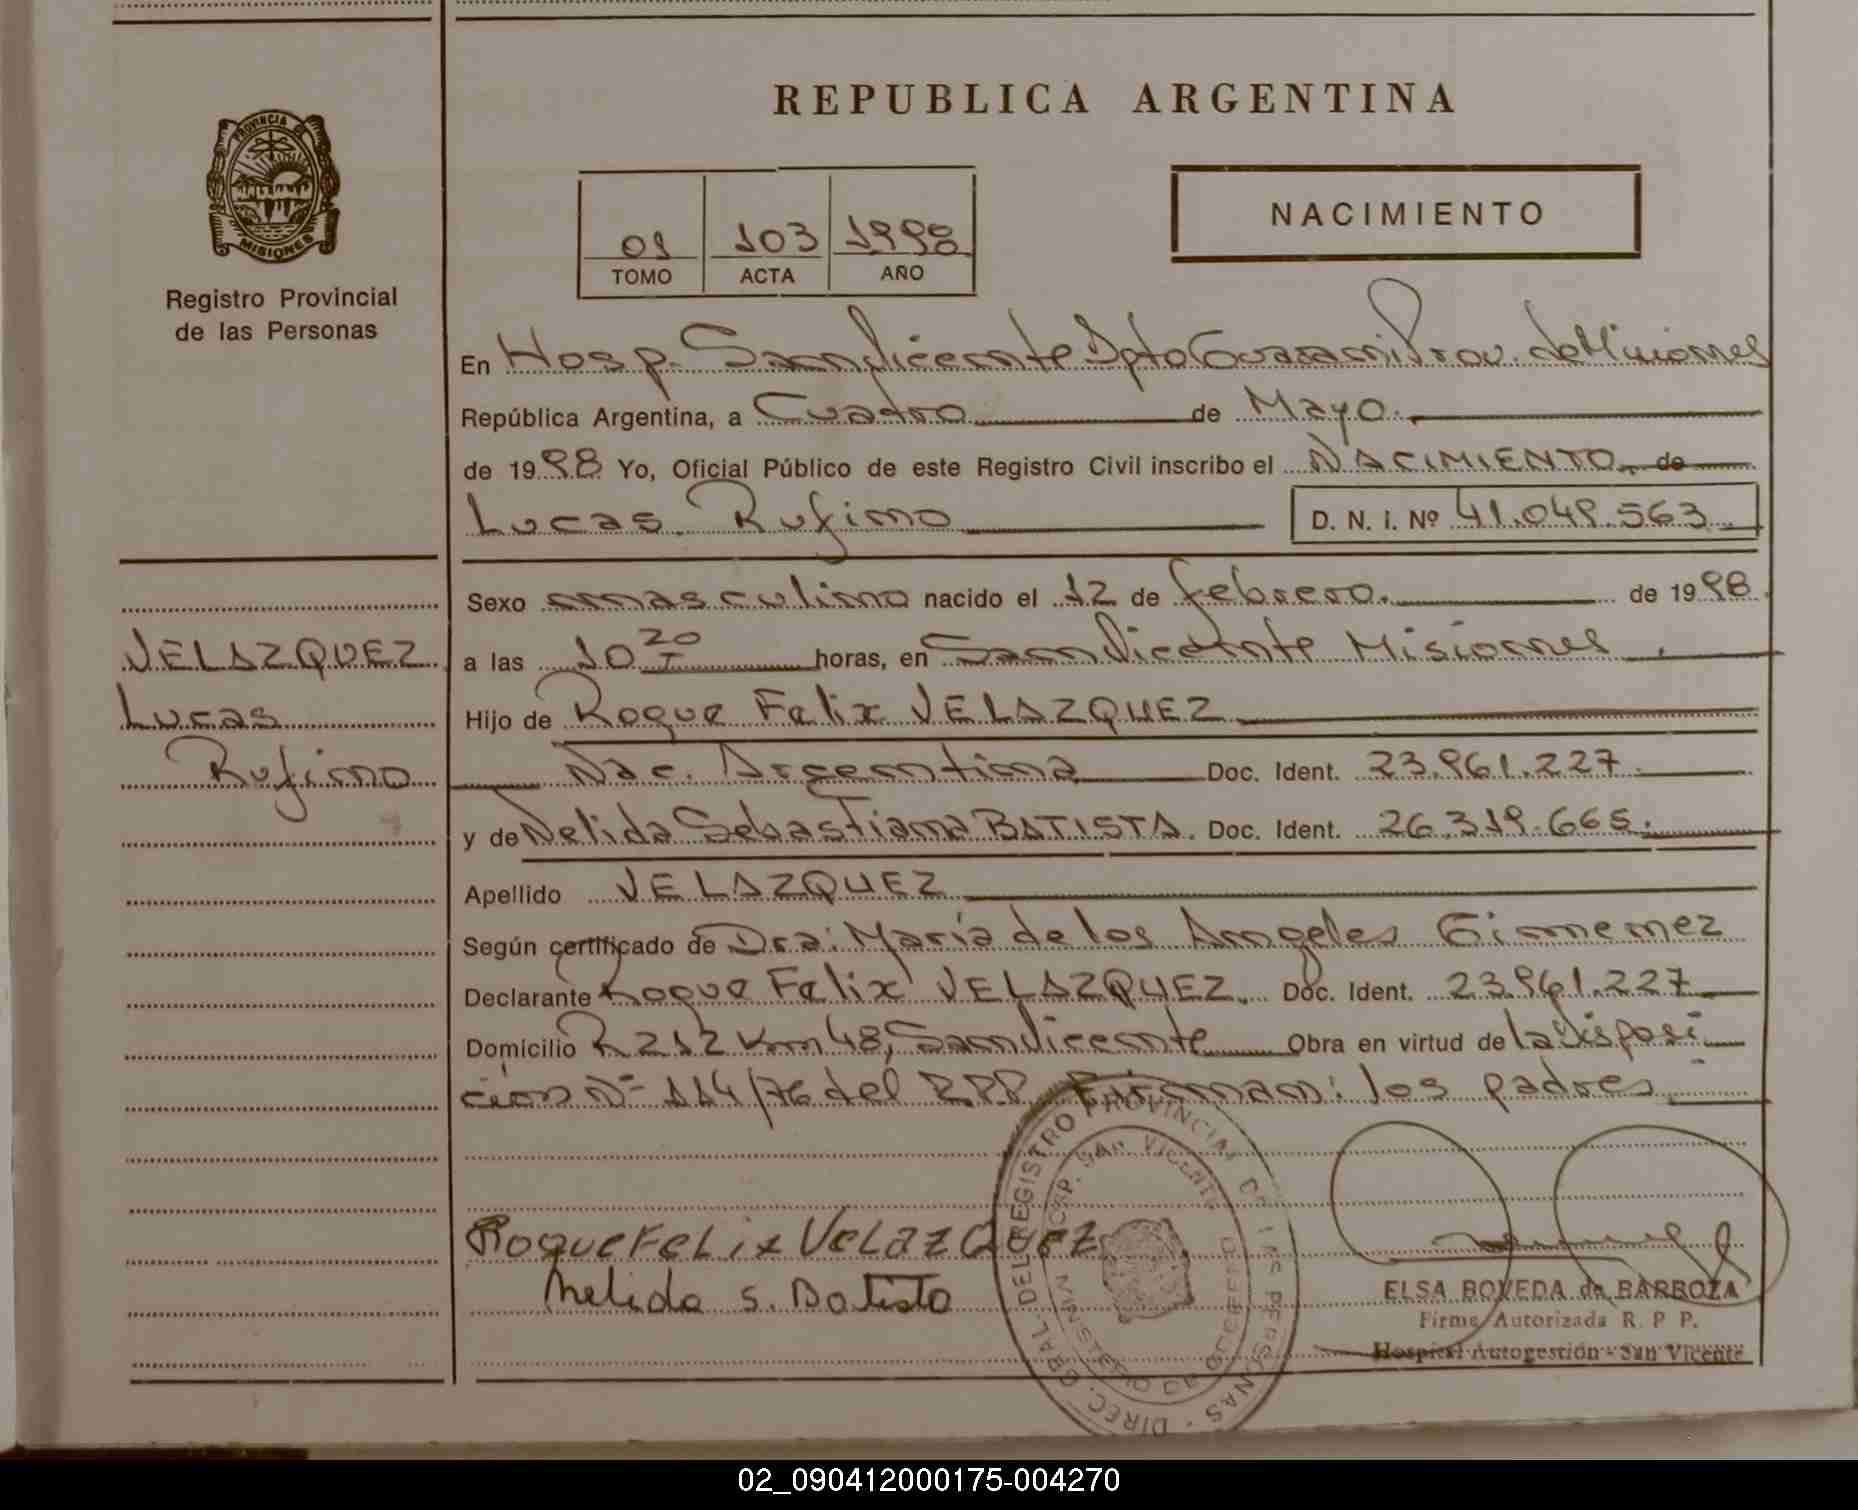 REPUBLICA ARGENTINA
PROVINCIA DE
MISIONES
Registro Provincial
de las Personas
01 103 1998
TOMO ACTA AÑO
NACIMIENTO
En Hosp. San Vicente Dpto Guarani Prov. de Misiones
República Argentina, a Cuatro de Mayo.
de 1998 Yo, Oficial Público de este Registro Civil inscribo el NACIMIENTO de
Lucas Rufino D. N. I. Nº 41.049.563
Sexo masculino nacido el 12 de febrero. de 1998
a las 10 20 horas, en San Vicente Misiones
Hijo de Roque Felix VELAZQUEZ
Nac. Argentina Doc. Ident. 23.961.227
y de Nelida Sebastiana BATISTA. Doc. Ident. 26.319.665.
Apellido VELAZQUEZ
Según certificado de Dra. María de los Angeles Gimenez
Declarante Roque Felix VELAZQUEZ. Doc. Ident. 23.961.227
Domicilio R212 Km 48, San Vicente Obra en virtud de la disposi
ción Nº 114/76 del RPP. Firman: los padres
VELAZQUEZ
Lucas
Rufino
Roque Felix VELAZQUEZ
Nelida S. Batista
DIREC. GRAL. DEL REGISTRO PROVINCIAL DE LAS PERSONAS
ELSA BOVEDA de BARBOZA
Firma Autorizada R. P P.
Hospital Autogestión - San Vicente
02_090412000175-004270